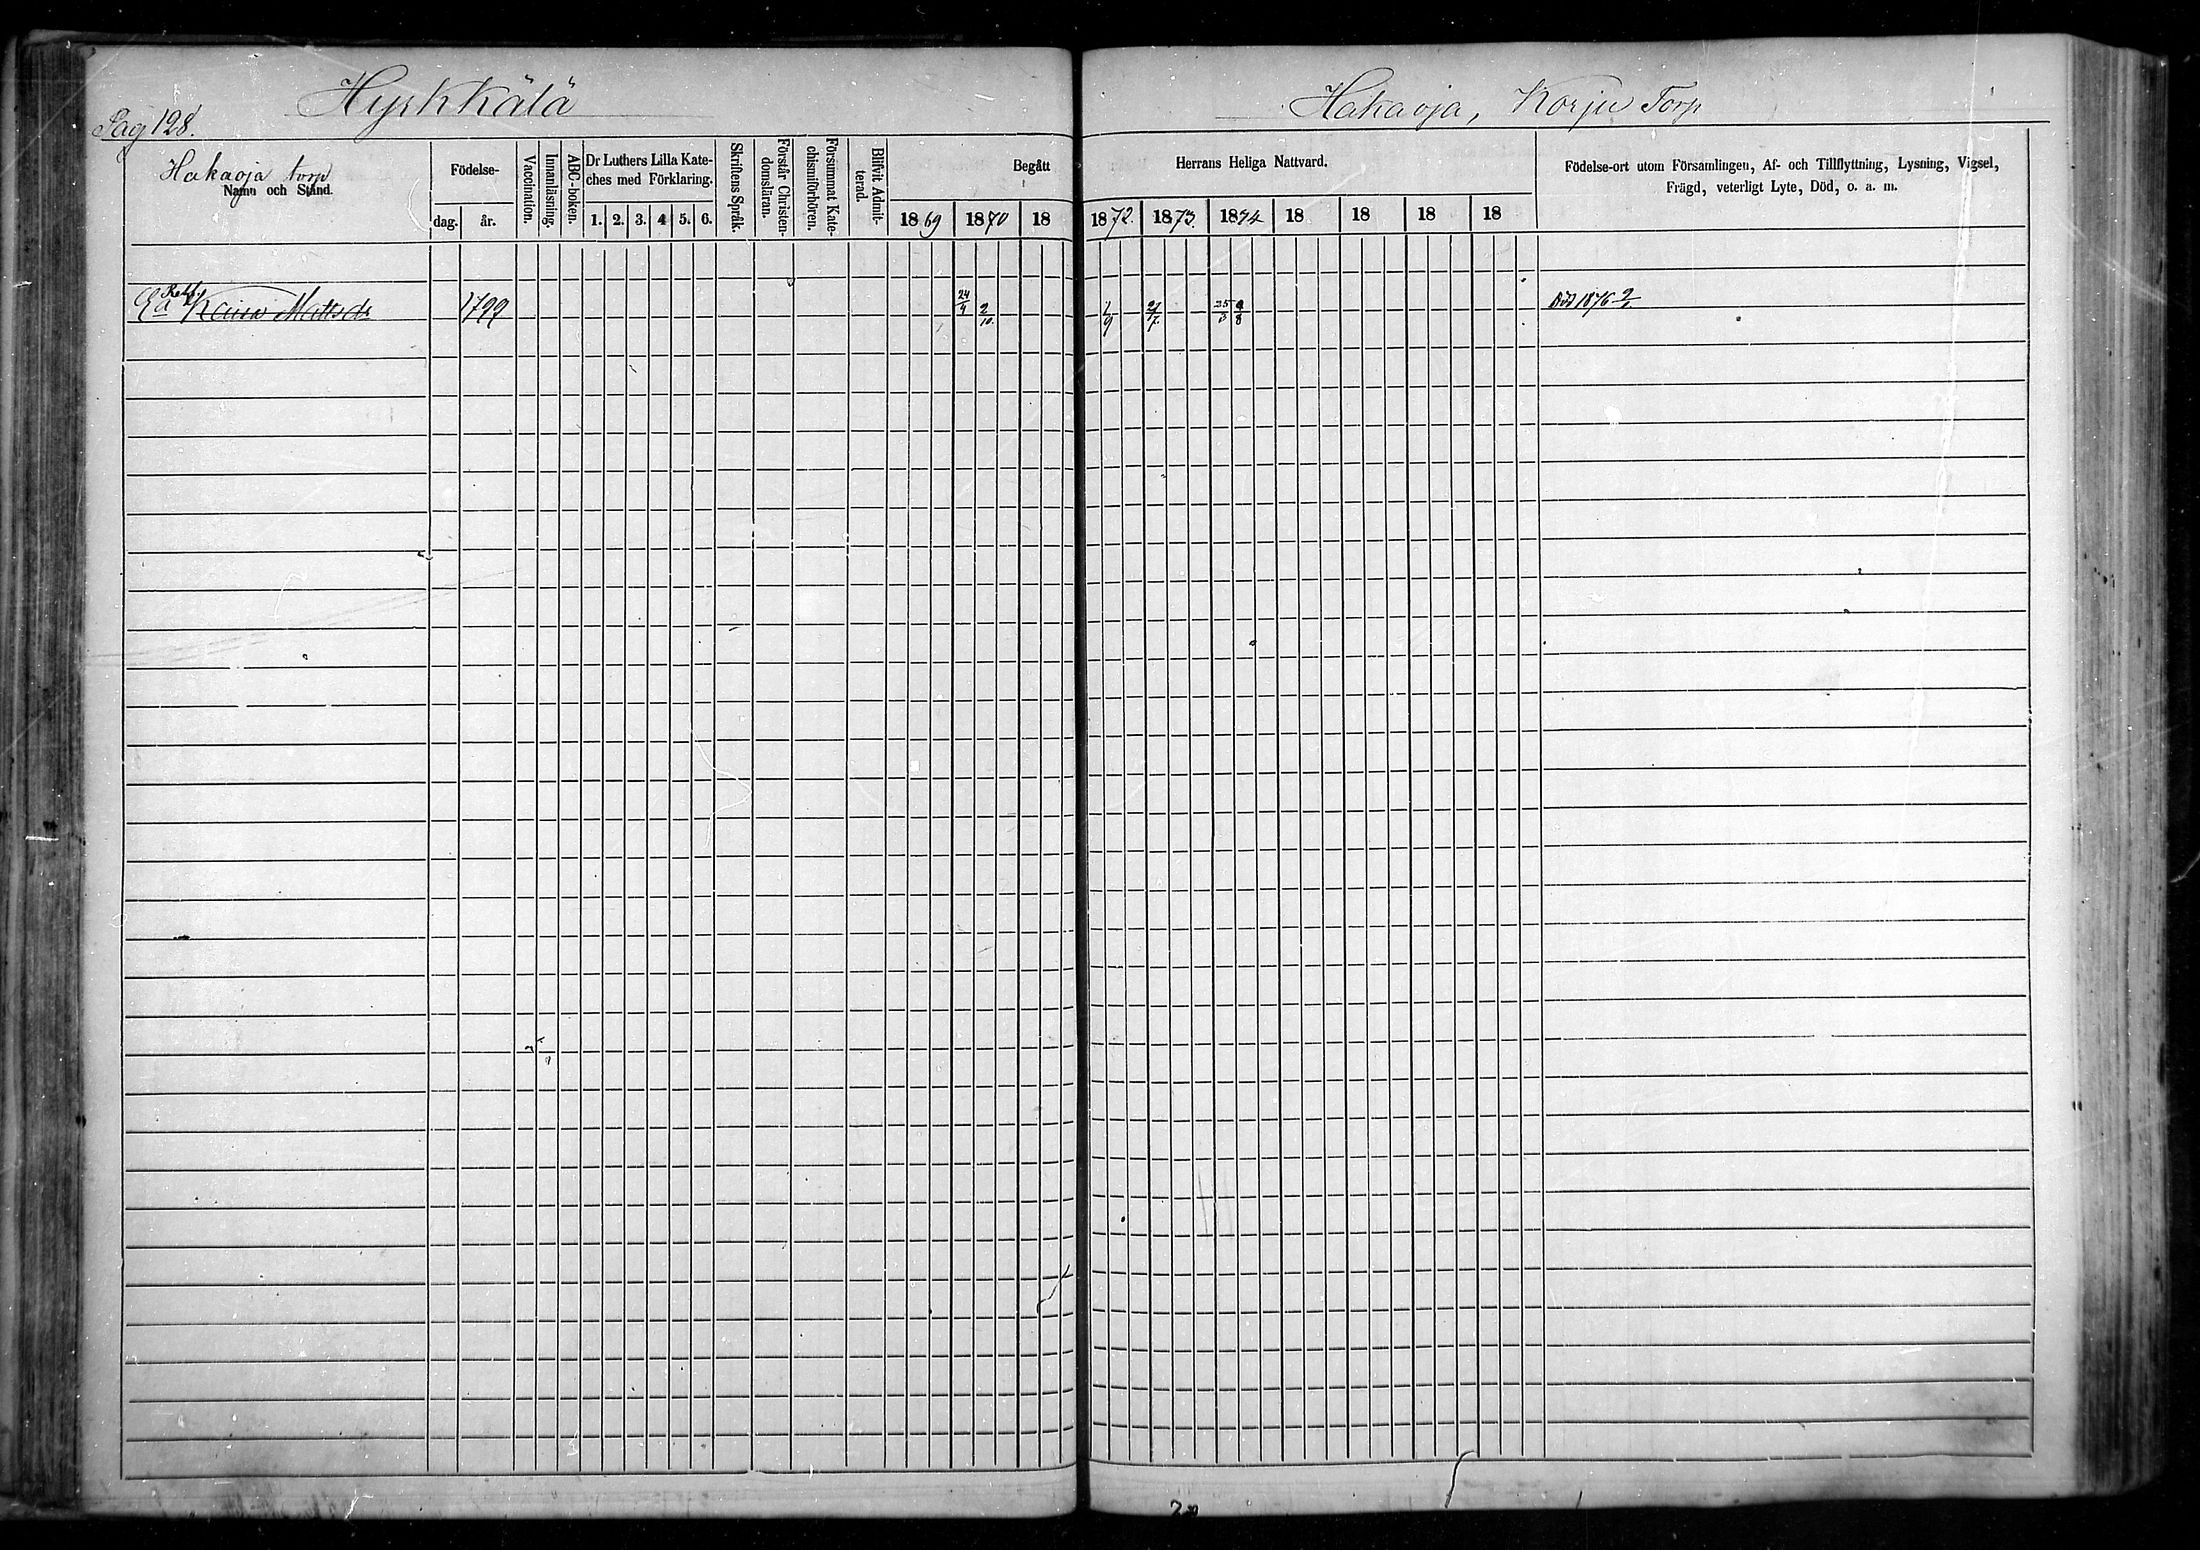 Hyrkkälä
Hakaoja, Korju Torp
Pag 128.
Hakaoja torp
Namn och Stånd.
Födelse-
dag. år.
Vaccination.
Innanläsning.
ABC-boken.
Dr Luthers Lilla Kate-
ches med Förklaring.
1. 2. 3. 4 5. 6.
Skriftens Språk.
Förstår Christen-
domsläran.
Försummat Kate-
chismiförhören.
Blifvit Admit-
terad.
Begått
1869 1870 18
Herrans Heliga Nattvard.
1872. 1873. 1874 18 18 18 18
Födelse-ort utom Församlingen, Af- och Tillflyttning, Lysning, Vigsel,
Frägd, veterligt Lyte, Död, o. a. m.
Kaisa Mattsdr 1799 24/4 2/10. 1/9 27/7. 25/3 8 Död 1876